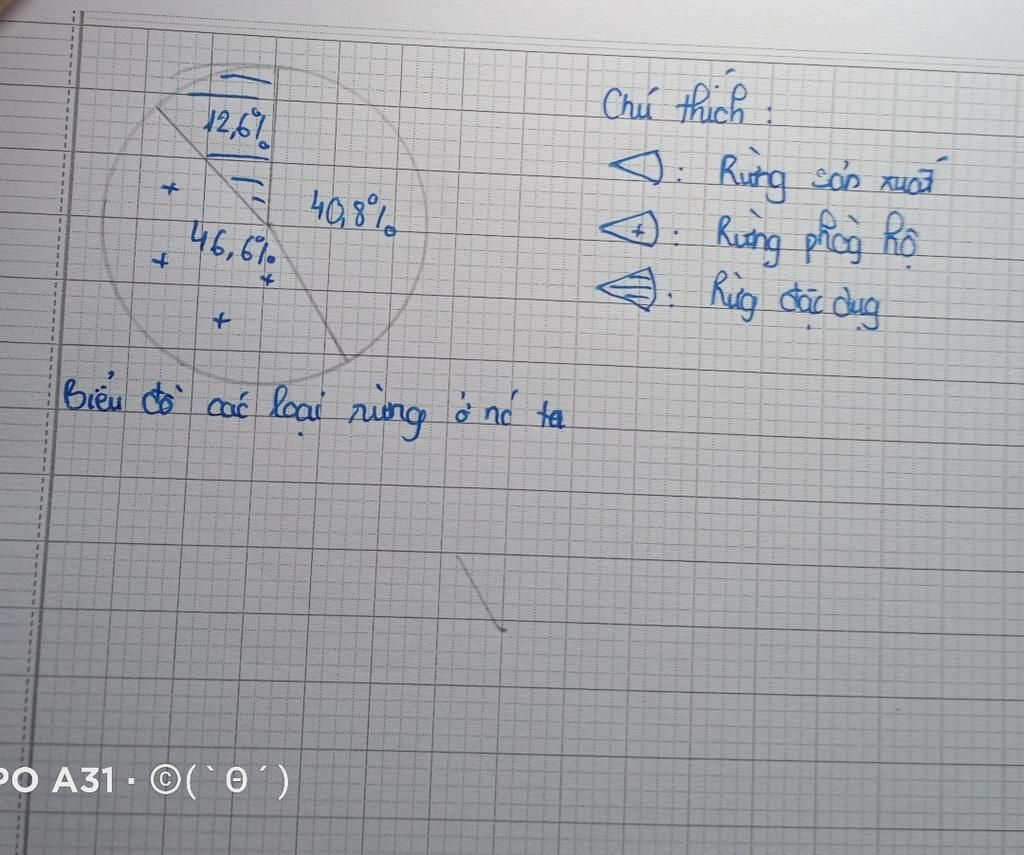 12,6%
40,8%
46,6%
Chú thích:
: Rừng sản xuất
: Rừng phòg hộ
: Rừg đặc dụg
Biểu đồ các loại rừng ở nc ta
PO A31 · ©(`θ´)